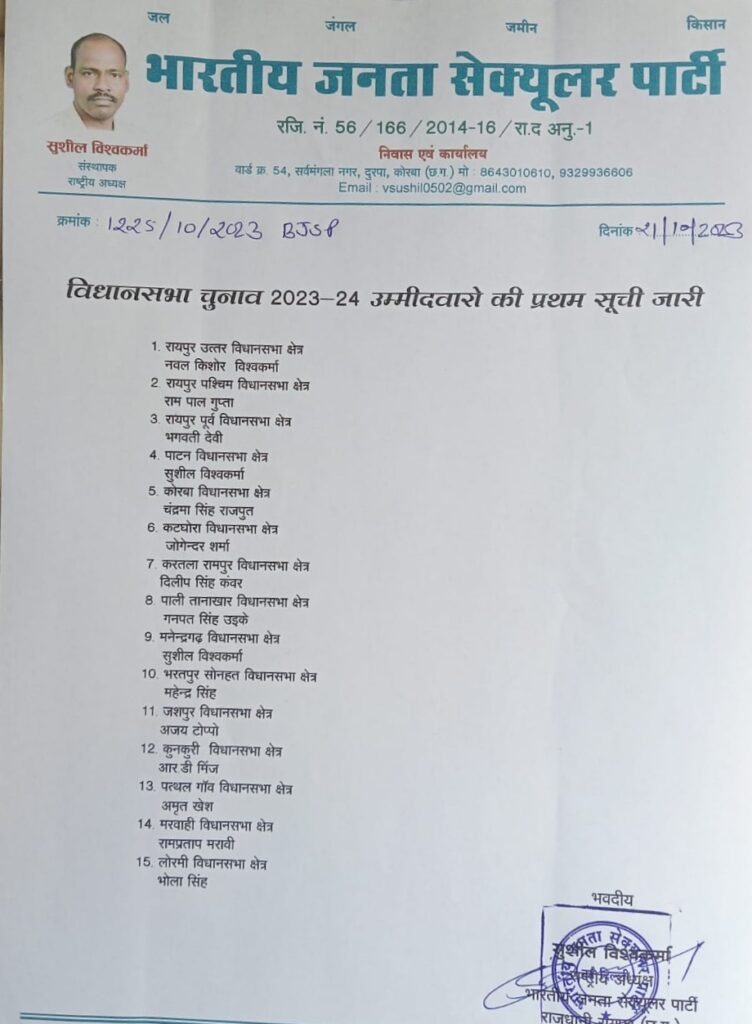 जल जंगल जमीन किसान
भारतीय जनता सेक्यूलर पार्टी
रजि. नं. 56 / 166 / 2014-16 / रा.द अनु.-1
सुशील विश्वकर्मा
संस्थापक
राष्ट्रीय अध्यक्ष
निवास एवं कार्यालय
वार्ड क्र. 54, सर्वमंगला नगर, दुरपा, कोरबा (छ.ग.) मो : 8643010610, 9329936606
Email : vsushil0502@gmail.com
क्रमांक : 1225/10/2023 BJSP दिनांक 21/10/2023
विधानसभा चुनाव 2023-24 उम्मीदवारो की प्रथम सूची जारी
1. रायपुर उत्तर विधानसभा क्षेत्र
नवल किशोर विश्वकर्मा
2. रायपुर पश्चिम विधानसभा क्षेत्र
राम पाल गुप्ता
3. रायपुर पूर्व विधानसभा क्षेत्र
भगवती देवी
4. पाटन विधानसभा क्षेत्र
सुशील विश्वकर्मा
5. कोरबा विधानसभा क्षेत्र
चंद्रमा सिंह राजपुत
6. कटघोरा विधानसभा क्षेत्र
जोगेन्दर शर्मा
7. करतला रामपुर विधानसभा क्षेत्र
दिलीप सिंह कंवर
8. पाली तानाखार विधानसभा क्षेत्र
गनपत सिंह उइके
9. मनेन्द्रगढ़ विधानसभा क्षेत्र
सुशील विश्वकर्मा
10. भरतपुर सोनहत विधानसभा क्षेत्र
महेन्द्र सिंह
11. जशपुर विधानसभा क्षेत्र
अजय टोप्पो
12. कुनकुरी विधानसभा क्षेत्र
आर.डी मिंज
13. पत्थल गॉव विधानसभा क्षेत्र
अमृत खेश
14. मरवाही विधानसभा क्षेत्र
रामप्रताप मरावी
15. लोरमी विधानसभा क्षेत्र
भोला सिंह
भवदीय
सुशील विश्वकर्मा
राष्ट्रीय अध्यक्ष
भारतीय जनता सेक्यूलर पार्टी
राजधानी रायपुर (छ.ग.)